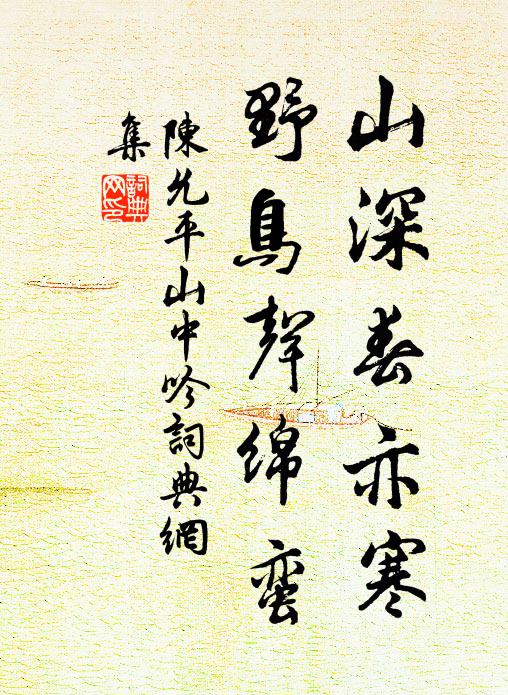 山深春亦寒
野鳥聲綿蠻
陳允平山中吟詞典網
集
詞典
网印